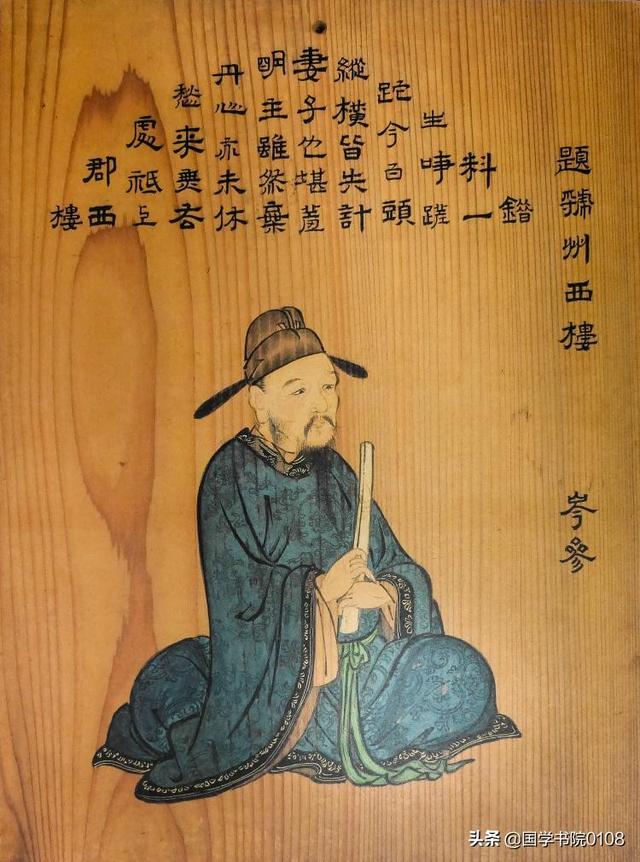 題虢州西樓
岑參
錯
料一
生事蹉
跎今白頭
縱橫皆失計
妻子也堪羞
明主雖然棄
丹心亦未休
愁來無去
處祗上
郡西
樓
头条 @国学书院0108